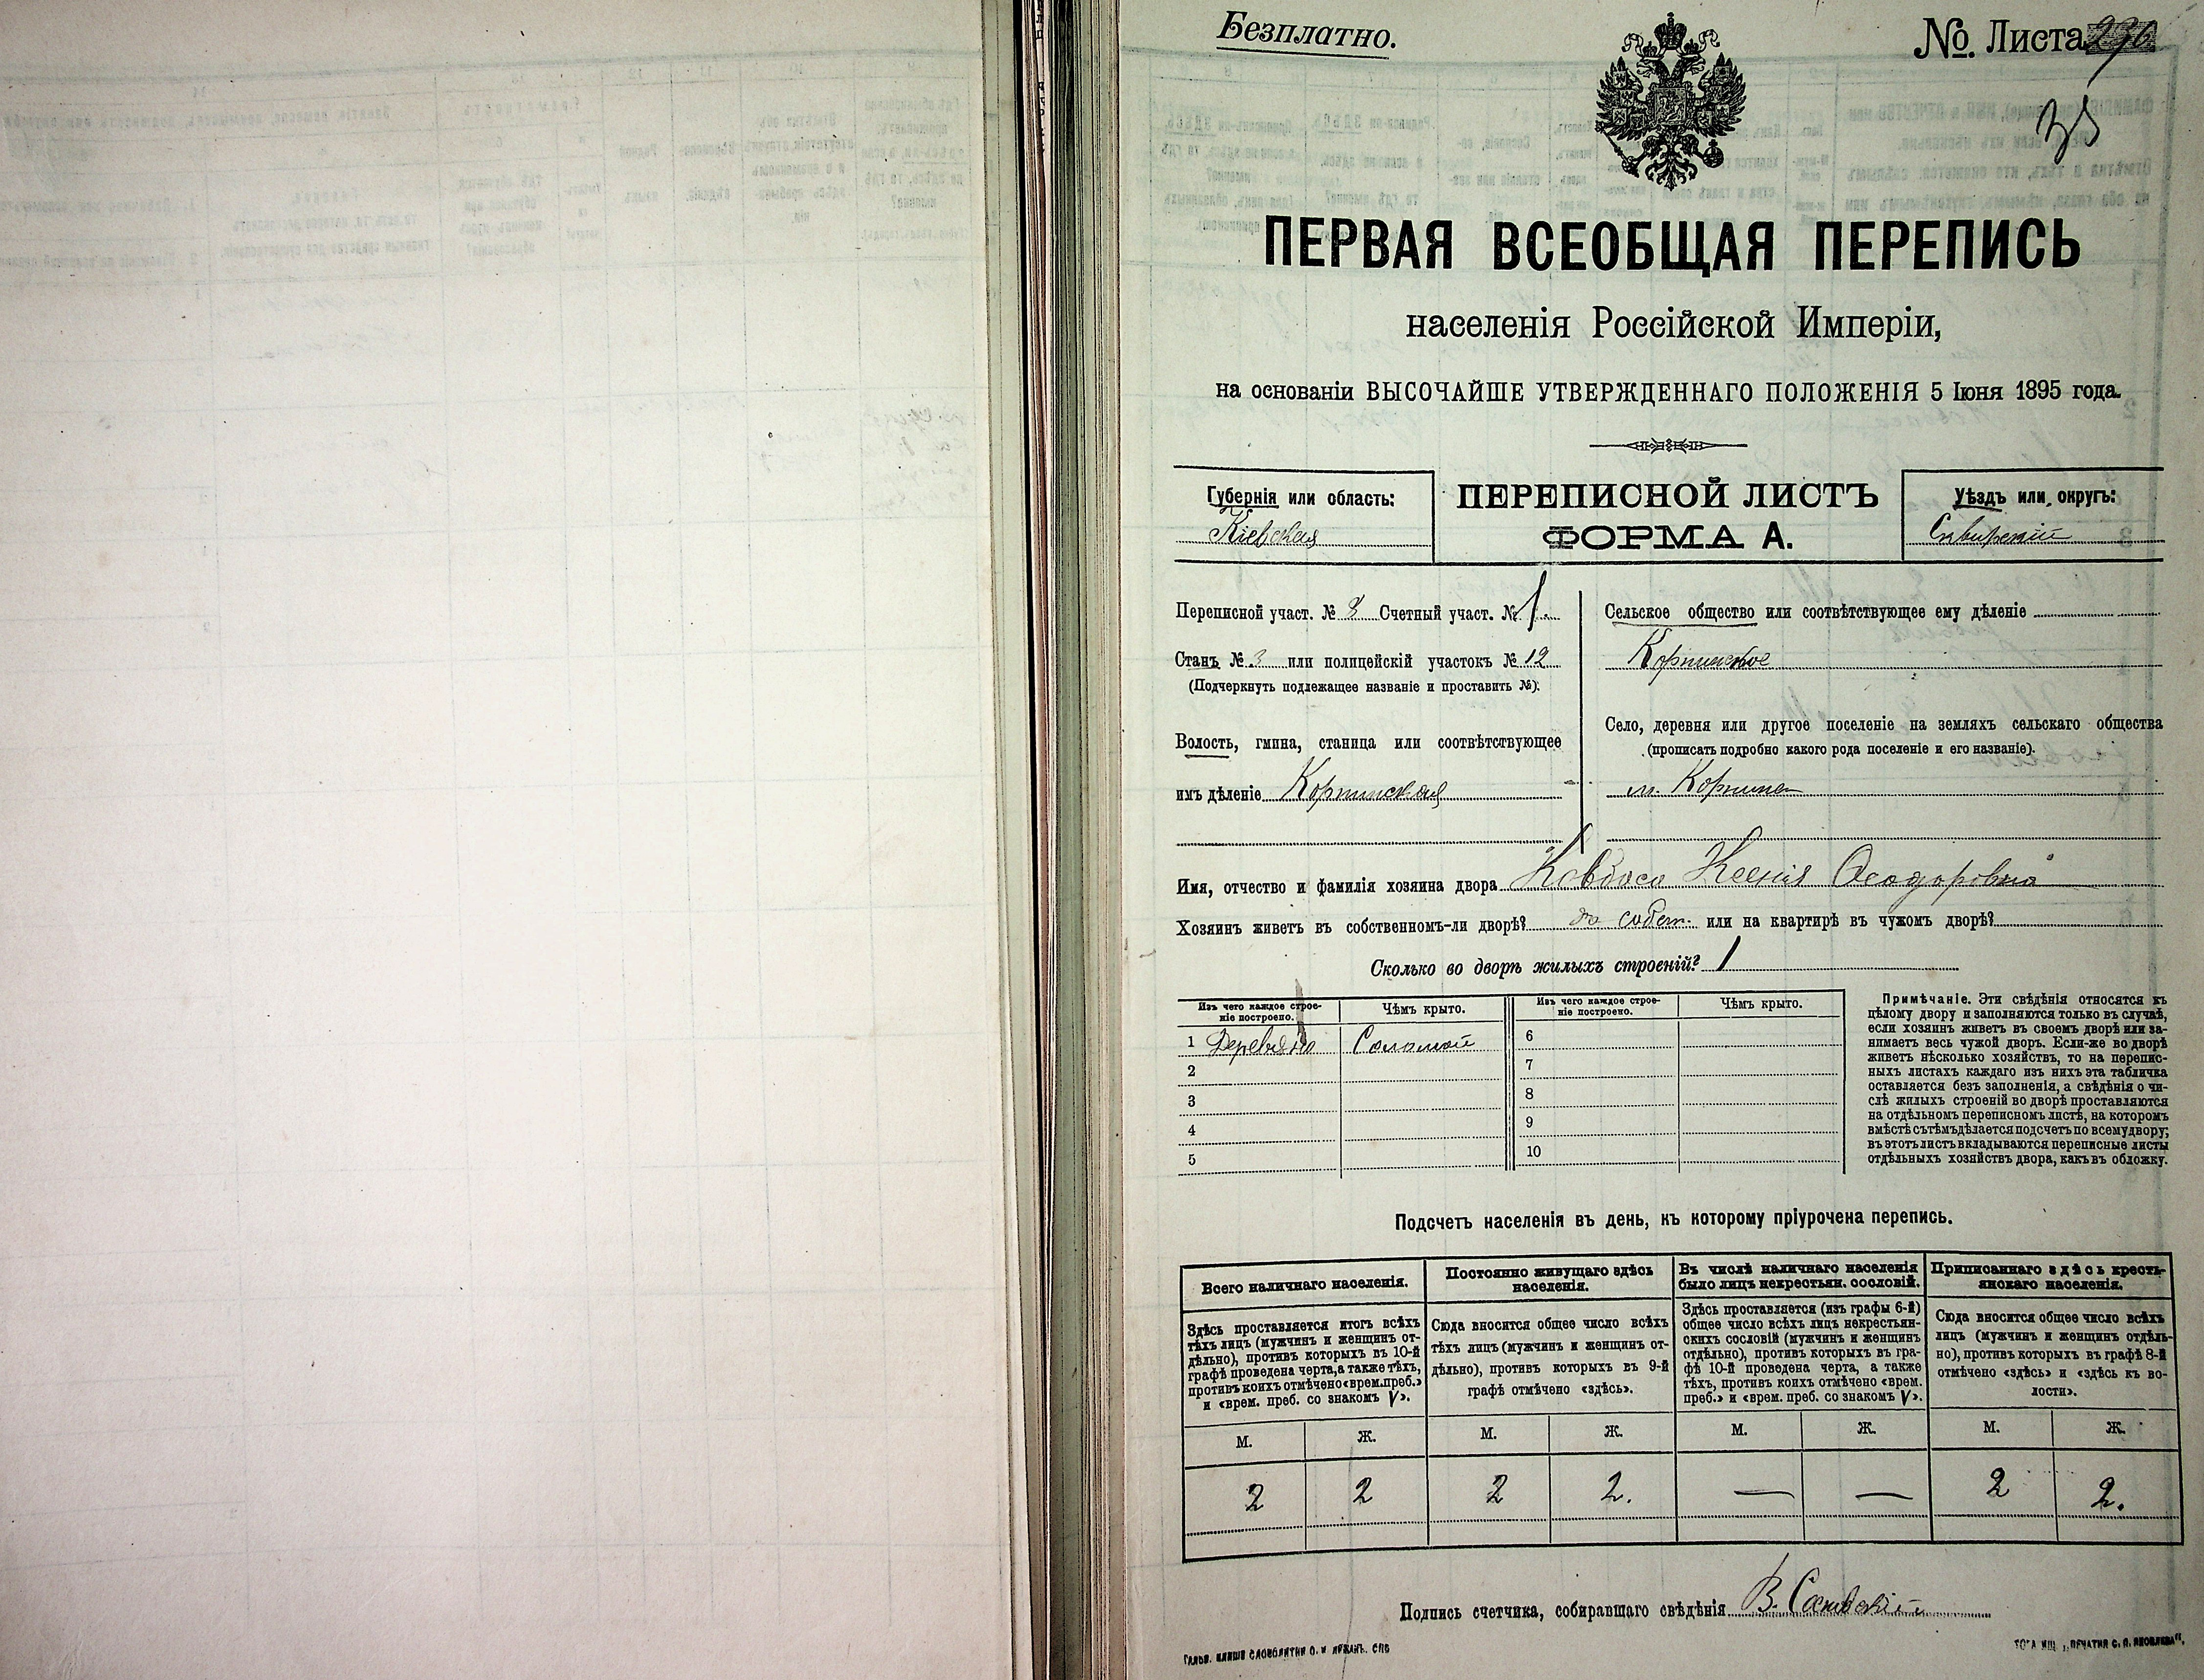 Безплатно.
№ Листа 296
35
ПЕРВАЯ ВСЕОБЩАЯ ПЕРЕПИСЬ
населенія Россійской Имперіи,
на основаніи ВЫСОЧАЙШЕ УТВЕРЖДЕННАГО ПОЛОЖЕНІЯ 5 Іюня 1895 года.
Губернія или область:
Кіевская
ПЕРЕПИСНОЙ ЛИСТЪ
ФОРМА А.
Уѣздъ или округъ:
Сквирскій
Переписной участ. № 3 Счетный участ. № 1.
Станъ № 3 или полицейскій участокъ № 12
(Подчеркнуть подлежащее названіе и проставить №).
Волость, гмина, станица или соотвѣтствующее
имъ дѣленіе Корнинская
Сельское общество или соотвѣтствующее ему дѣленіе
Корнинское
Село, деревня или другое поселеніе на земляхъ сельскаго общества
(прописать подробно какого рода поселеніе и его названіе).
м. Корнинъ
Имя, отчество и фамилія хозяина двора Ковбаса Ксенія Феодоровна
Хозяинъ живетъ въ собственномъ-ли дворѣ? въ собст. или на квартирѣ въ чужомъ дворѣ?
Сколько во дворѣ жилыхъ строеній? 1
Изъ чего каждое строе-
ніе построено.
Чѣмъ крыто.
Изъ чего каждое строе-
ніе построено.
Чѣмъ крыто.
1 Дерев Соломой
2
3
4
5
6
7
8
9
10
Примѣчаніе. Эти свѣдѣнія относятся къ
цѣлому двору и заполняются только въ случаѣ,
если хозяинъ живетъ въ своемъ дворѣ или за-
нимаетъ весь чужой дворъ. Если-же во дворѣ
живетъ нѣсколько хозяйствъ, то на перепис-
ныхъ листахъ каждаго изъ нихъ эта табличка
оставляется безъ заполненія, а свѣдѣнія о чи-
слѣ жилыхъ строеній во дворѣ проставляются
на отдѣльномъ переписномъ листѣ, на которомъ
вмѣстѣ съ тѣмъ дѣлается подсчетъ по всему двору;
въ этотъ листъ вкладываются переписные листы
отдѣльныхъ хозяйствъ двора, какъ въ обложку.
Подсчетъ населенія въ день, къ которому пріурочена перепись.
Всего наличнаго населенія.
Здѣсь проставляется итогъ всѣхъ
тѣхъ лицъ (мужчинъ и женщинъ от-
дѣльно), противъ которыхъ въ 10-й
графѣ проведена черта, а также тѣхъ,
противъ коихъ отмѣчено «врем. преб.»
и «врем. преб. со знакомъ V».
Постоянно живущаго здѣсь
населенія.
Сюда вносится общее число всѣхъ
тѣхъ лицъ (мужчинъ и женщинъ от-
дѣльно), противъ которыхъ въ 9-й
графѣ отмѣчено «здѣсь».
Въ числѣ наличнаго населенія
было лицъ некрестьян. сословій.
Здѣсь проставляется (изъ графы 6-й)
общее число всѣхъ лицъ некрестьян-
скихъ сословій (мужчинъ и женщинъ
отдѣльно), противъ которыхъ въ гра-
фѣ 10-й проведена черта, а также
тѣхъ, противъ коихъ отмѣчено «врем.
преб.» и «врем. преб. со знакомъ V».
Приписаннаго здѣсь кресть-
янскаго населенія.
Сюда вносится общее число всѣхъ
лицъ (мужчинъ и женщинъ отдѣль-
но), противъ которыхъ въ графѣ 8-й
отмѣчено «здѣсь» и «здѣсь къ во-
лости».
М. Ж. М. Ж. М. Ж. М. Ж.
2 2 2 2. — — 2 2.
Подпись счетчика, собиравшаго свѣдѣнія В.